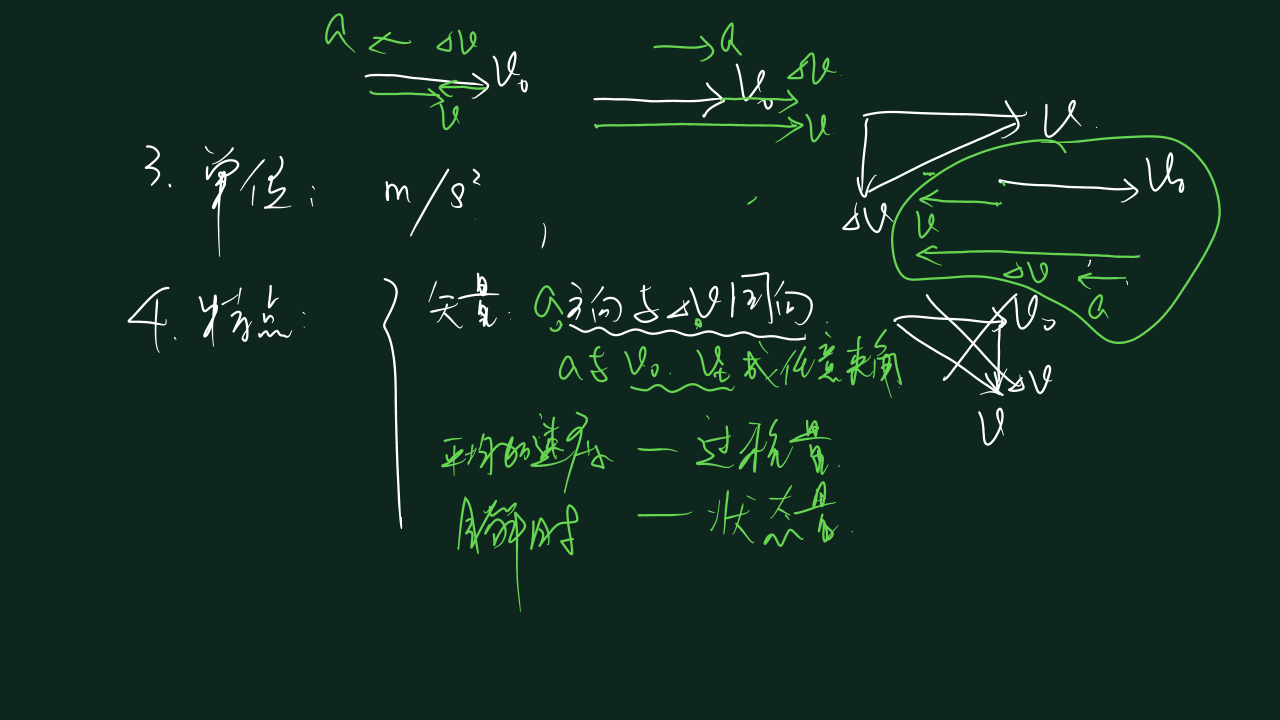 a ← Δv
v₀
v
→ a
v₀ Δv
v
v
Δv
v₀
v
Δv
a
v₀
Δv
v
3. 单位: m/s²
4. 特点:
矢量: a方向与Δv同向
a与v₀. vt成任意夹角
平均加速度 — 过程量
瞬时 — 状态量